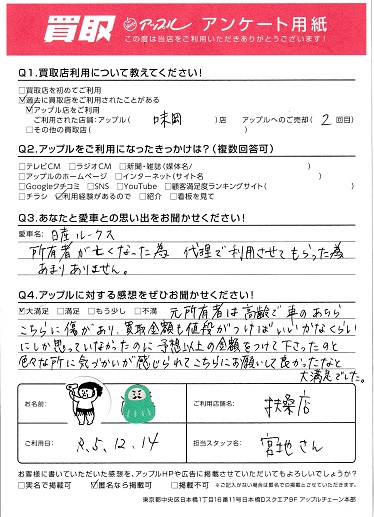 買取 アップル アンケート用紙
この度は当店をご利用いただきありがとうございます!
Q1.買取店利用について教えてください!
□買取店を初めてご利用
☑過去に買取店をご利用されたことがある
☑アップル店をご利用
ご利用された店舗:アップル( 味岡 )店 アップルへのご売却( 2 回目)
□その他の買取店( )
Q2.アップルをご利用になったきっかけは?(複数回答可)
□テレビCM □ラジオCM □新聞・雑誌(媒体名/ )
□アップルのホームページ □インターネット(サイト名 )
□Googleクチコミ □SNS □YouTube □顧客満足度ランキングサイト( )
□チラシ ☑利用経験があるので □紹介 □看板を見て
Q3.あなたと愛車との思い出をお聞かせください!
愛車名: 日産ルークス
所有者が亡くなった為 代理で利用させてもらった為
あまりありません。
Q4.アップルに対する感想をぜひお聞かせください!
☑大満足 □満足 □もう少し □不満 元所有者は高齢で車のあちら
こちらに傷があり、買取金額も値段がつけばいいかなくらい
にしか思っていなかったのに予想以上の金額をつけて下さったのと
色々な所に気づかいが感じられてこちらにお願いして良かったなと
大満足でした。
お名前:
ご利用店舗名: 扶桑店
ご利用日: R.5.12.14
担当スタッフ名: 宮地さん
お客様に書いていただいた感想を、アップルHPや広告に掲載させていただいてもよろしいでしょうか?
□実名で掲載可 ☑匿名なら掲載可 □掲載不可 ※ご記入がない場合は匿名での掲載とさせていただきます。
東京都中央区日本橋1丁目16番11号日本橋Dスクエア9F アップルチェーン本部